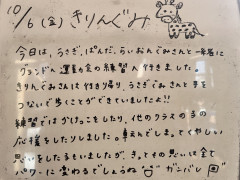 10/6(金)きりんぐみ
今日は、うさぎ、ぱんだ、らいおんぐみさんと一緒に
グランドへ運動会の練習へ行きました。
きりんぐみさんは行き帰り、うさぎぐみさんと手を
つないで歩くことができていましたよ!!
練習ではかけっこをしたり、他のクラスの子の
応援をしたりしました。転んでしまってくやしい
思いをした子もいましたが、きっとその思いは全て
パワーに変わるでしょうね ガンバレ